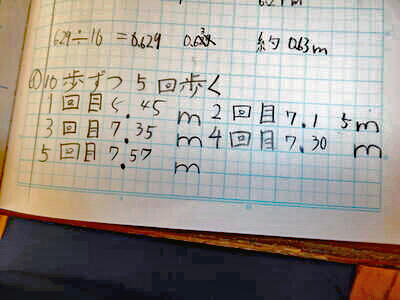 629÷10=0.629 約0.63m
①10歩ずつ5回歩く
1回目6.45m 2回目7.15m
3回目7.35m 4回目7.30m
5回目7.57m